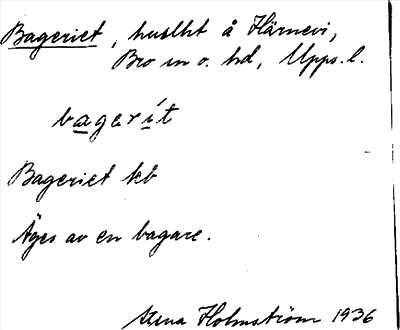 Bageriet, huslht å Härnevi,
Bro sn o. hd, Upps. l.
bagerít
Bageriet kb
Äges av en bagare.
Holmström 1936